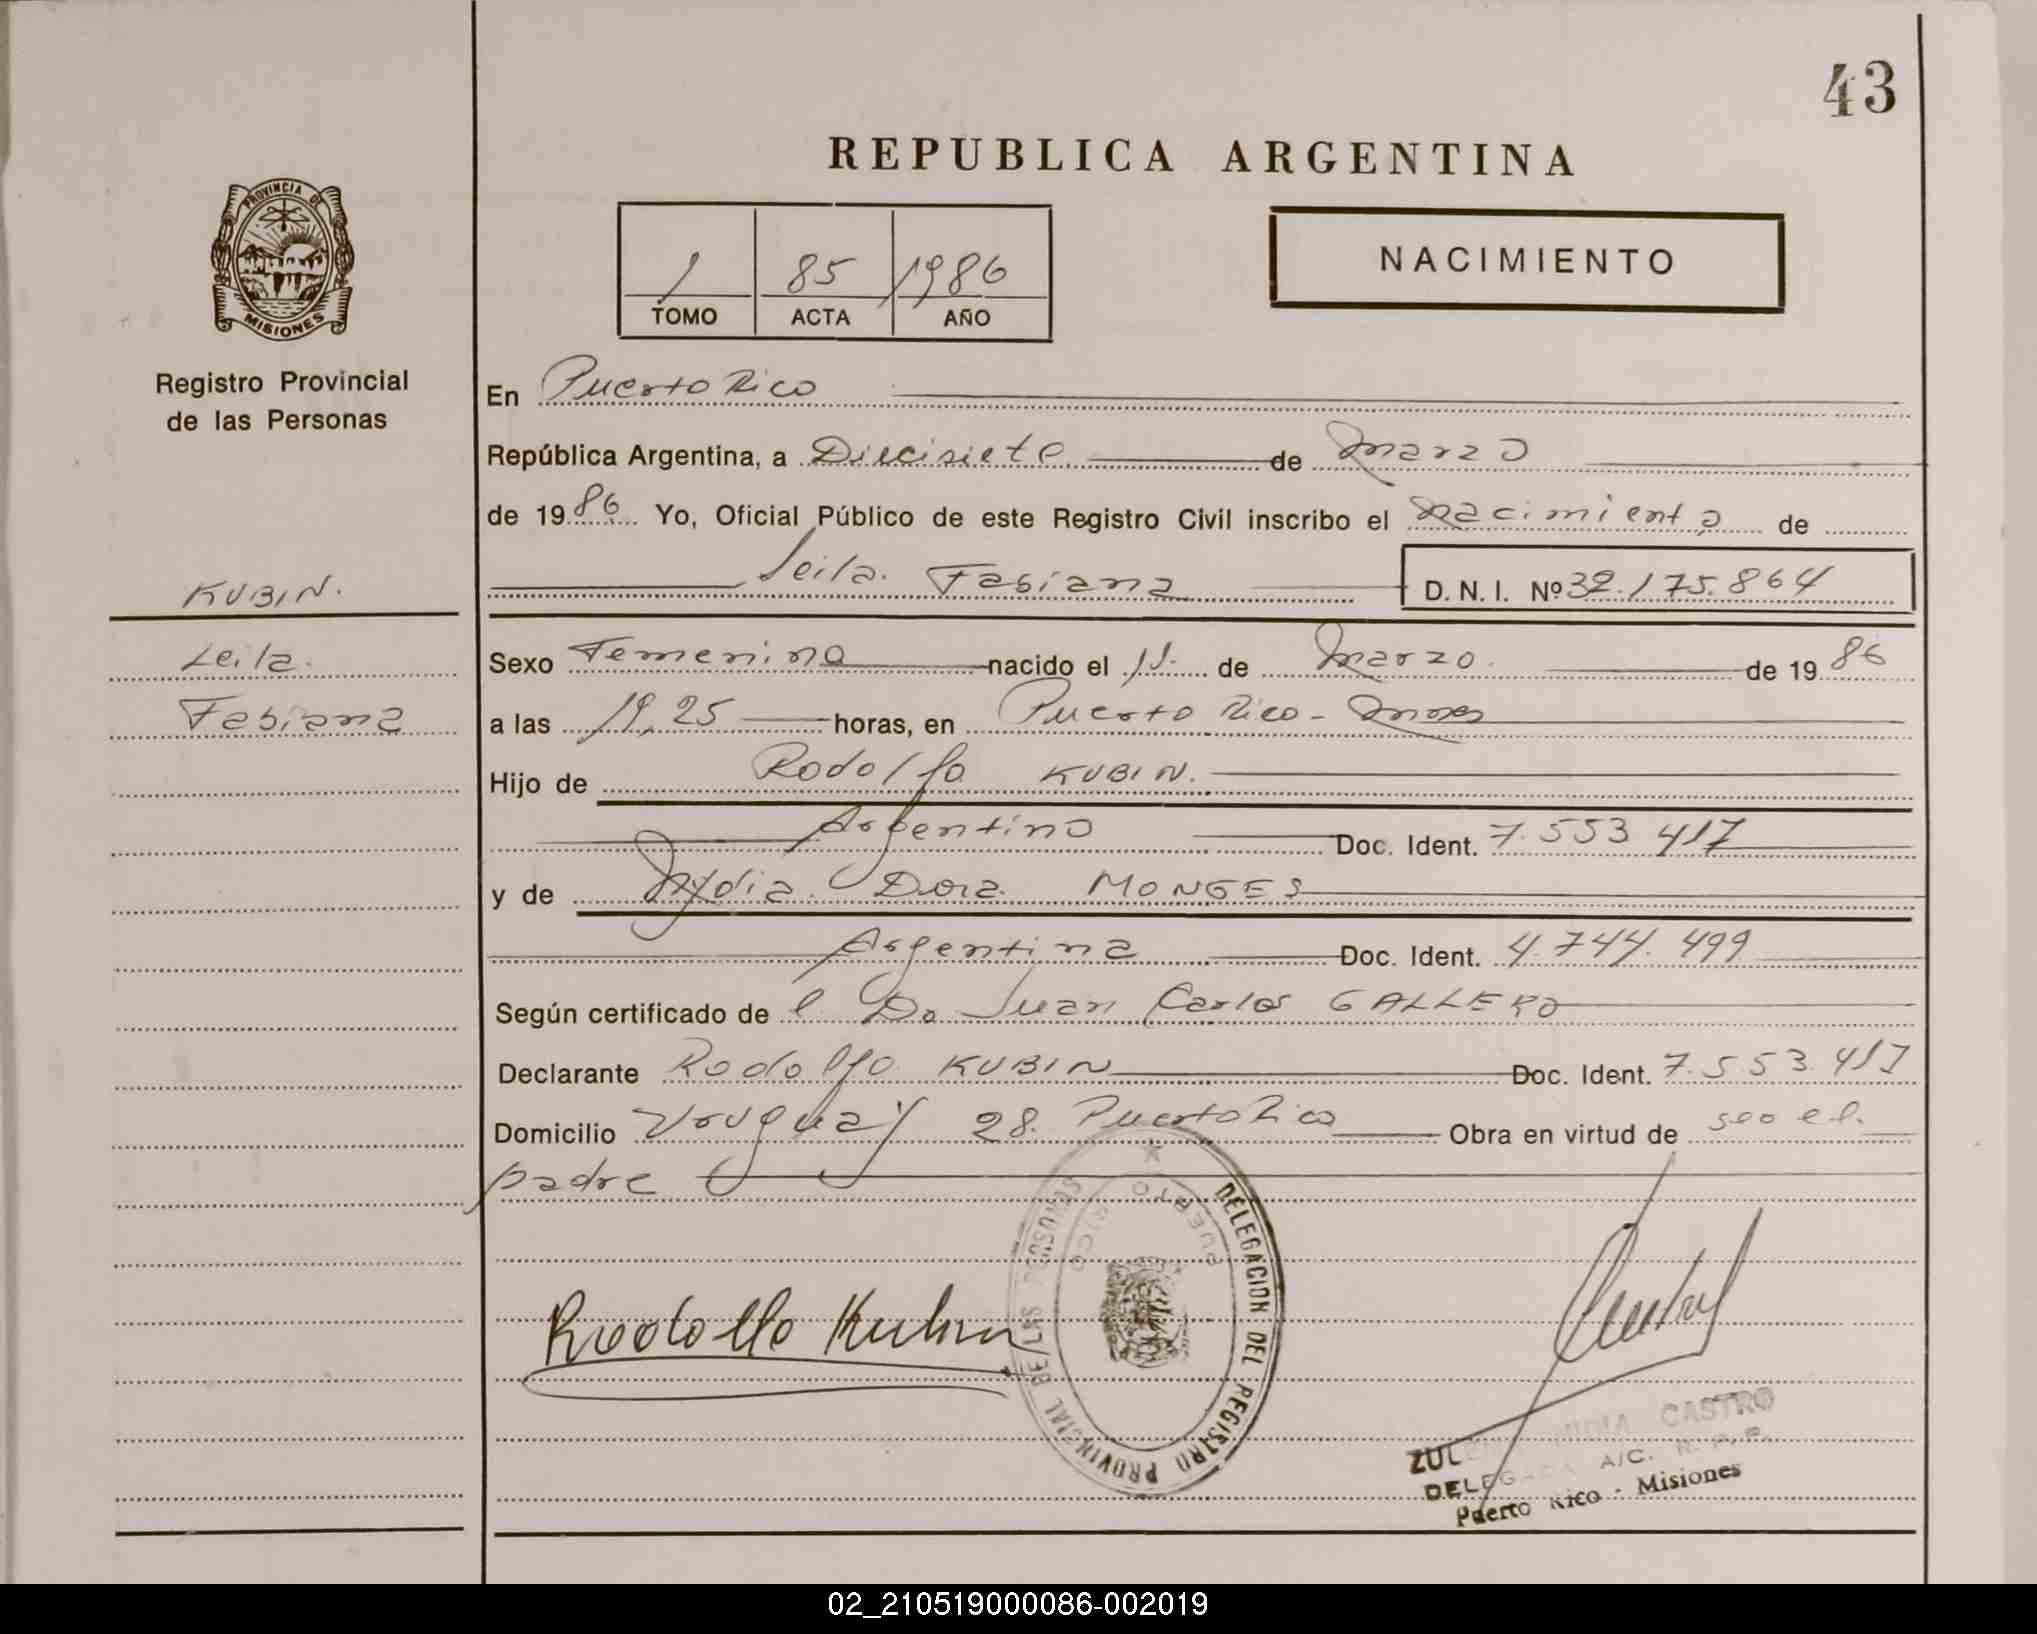 43
REPUBLICA ARGENTINA
PROVINCIA DE
MISIONES
Registro Provincial
de las Personas
1 85 1986
TOMO ACTA AÑO
NACIMIENTO
En Puerto Rico
República Argentina, a Diecisiete de Marzo
de 1986 Yo, Oficial Público de este Registro Civil inscribo el nacimiento de
Leila Fabiana D. N. I. Nº 32.175.864
KUBIN.
Leila
Fabiana
Sexo Femenino nacido el 11 de Marzo de 1986
a las 19,25 horas, en Puerto Rico - Mnes
Hijo de Rodolfo KUBIN.
Argentino Doc. Ident. 7.553.417
y de Nydia Dora MONGES
Argentina Doc. Ident. 4.744.499
Según certificado de l Dr Juan Carlos GALLERO
Declarante Rodolfo KUBIN Doc. Ident. 7.553.417
Domicilio Uruguay 28. Puerto Rico Obra en virtud de ser el
padre
Rodolfo Kubin
DELEGACION DEL REGISTRO PROVINCIAL DE LAS PERSONAS
PUERTO RICO
CASTRO
A/C. R. P. P.
Puerto Rico - Misiones
02_210519000086-002019